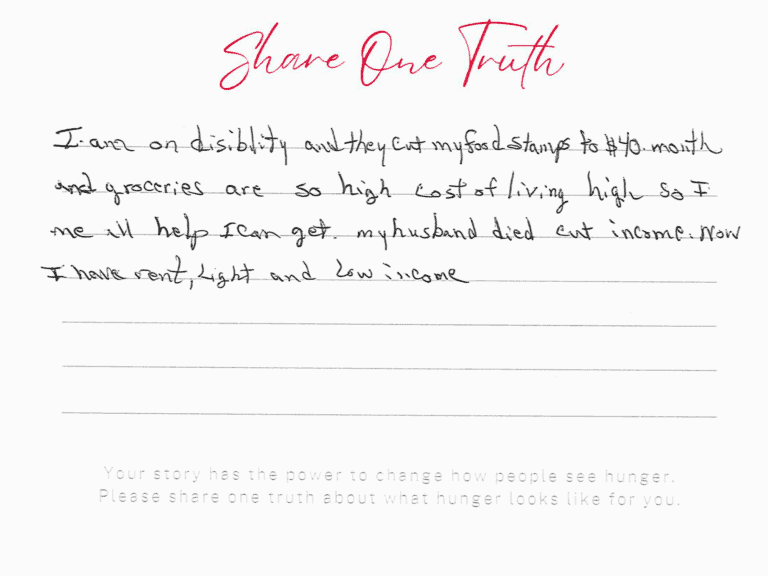 Share One Truth
I am on disiblity and they cut my food stamps to $40. month
and groceries are so high cost of living high so I
me all help I can get. my husband died cut income. Now
I have rent, Light and Low income
Your story has the power to change how people see hunger.
Please share one truth about what hunger looks like for you.